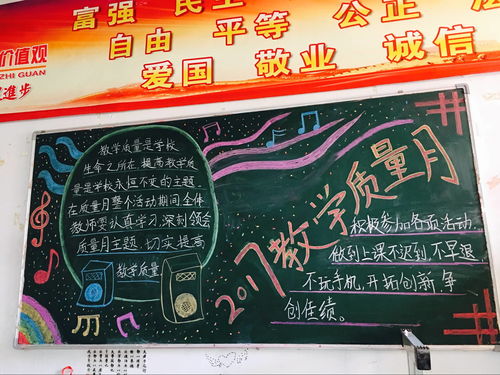 富强 民主
公正 法
自由 平等
价值观
ZHI GUAN
爱国 敬业 诚信
進步
教学质量是学校
生命之所在,提高教学质
量是学校永恒不变的主题
在质量月整个活动期间全体
教师要认真学习深刻领会
质量月主题,切实提高
教学质量
2017教学质量月
积极参加各项活动
做到上课不迟到不早退,
不玩手机,开拓创新争
创佳绩。